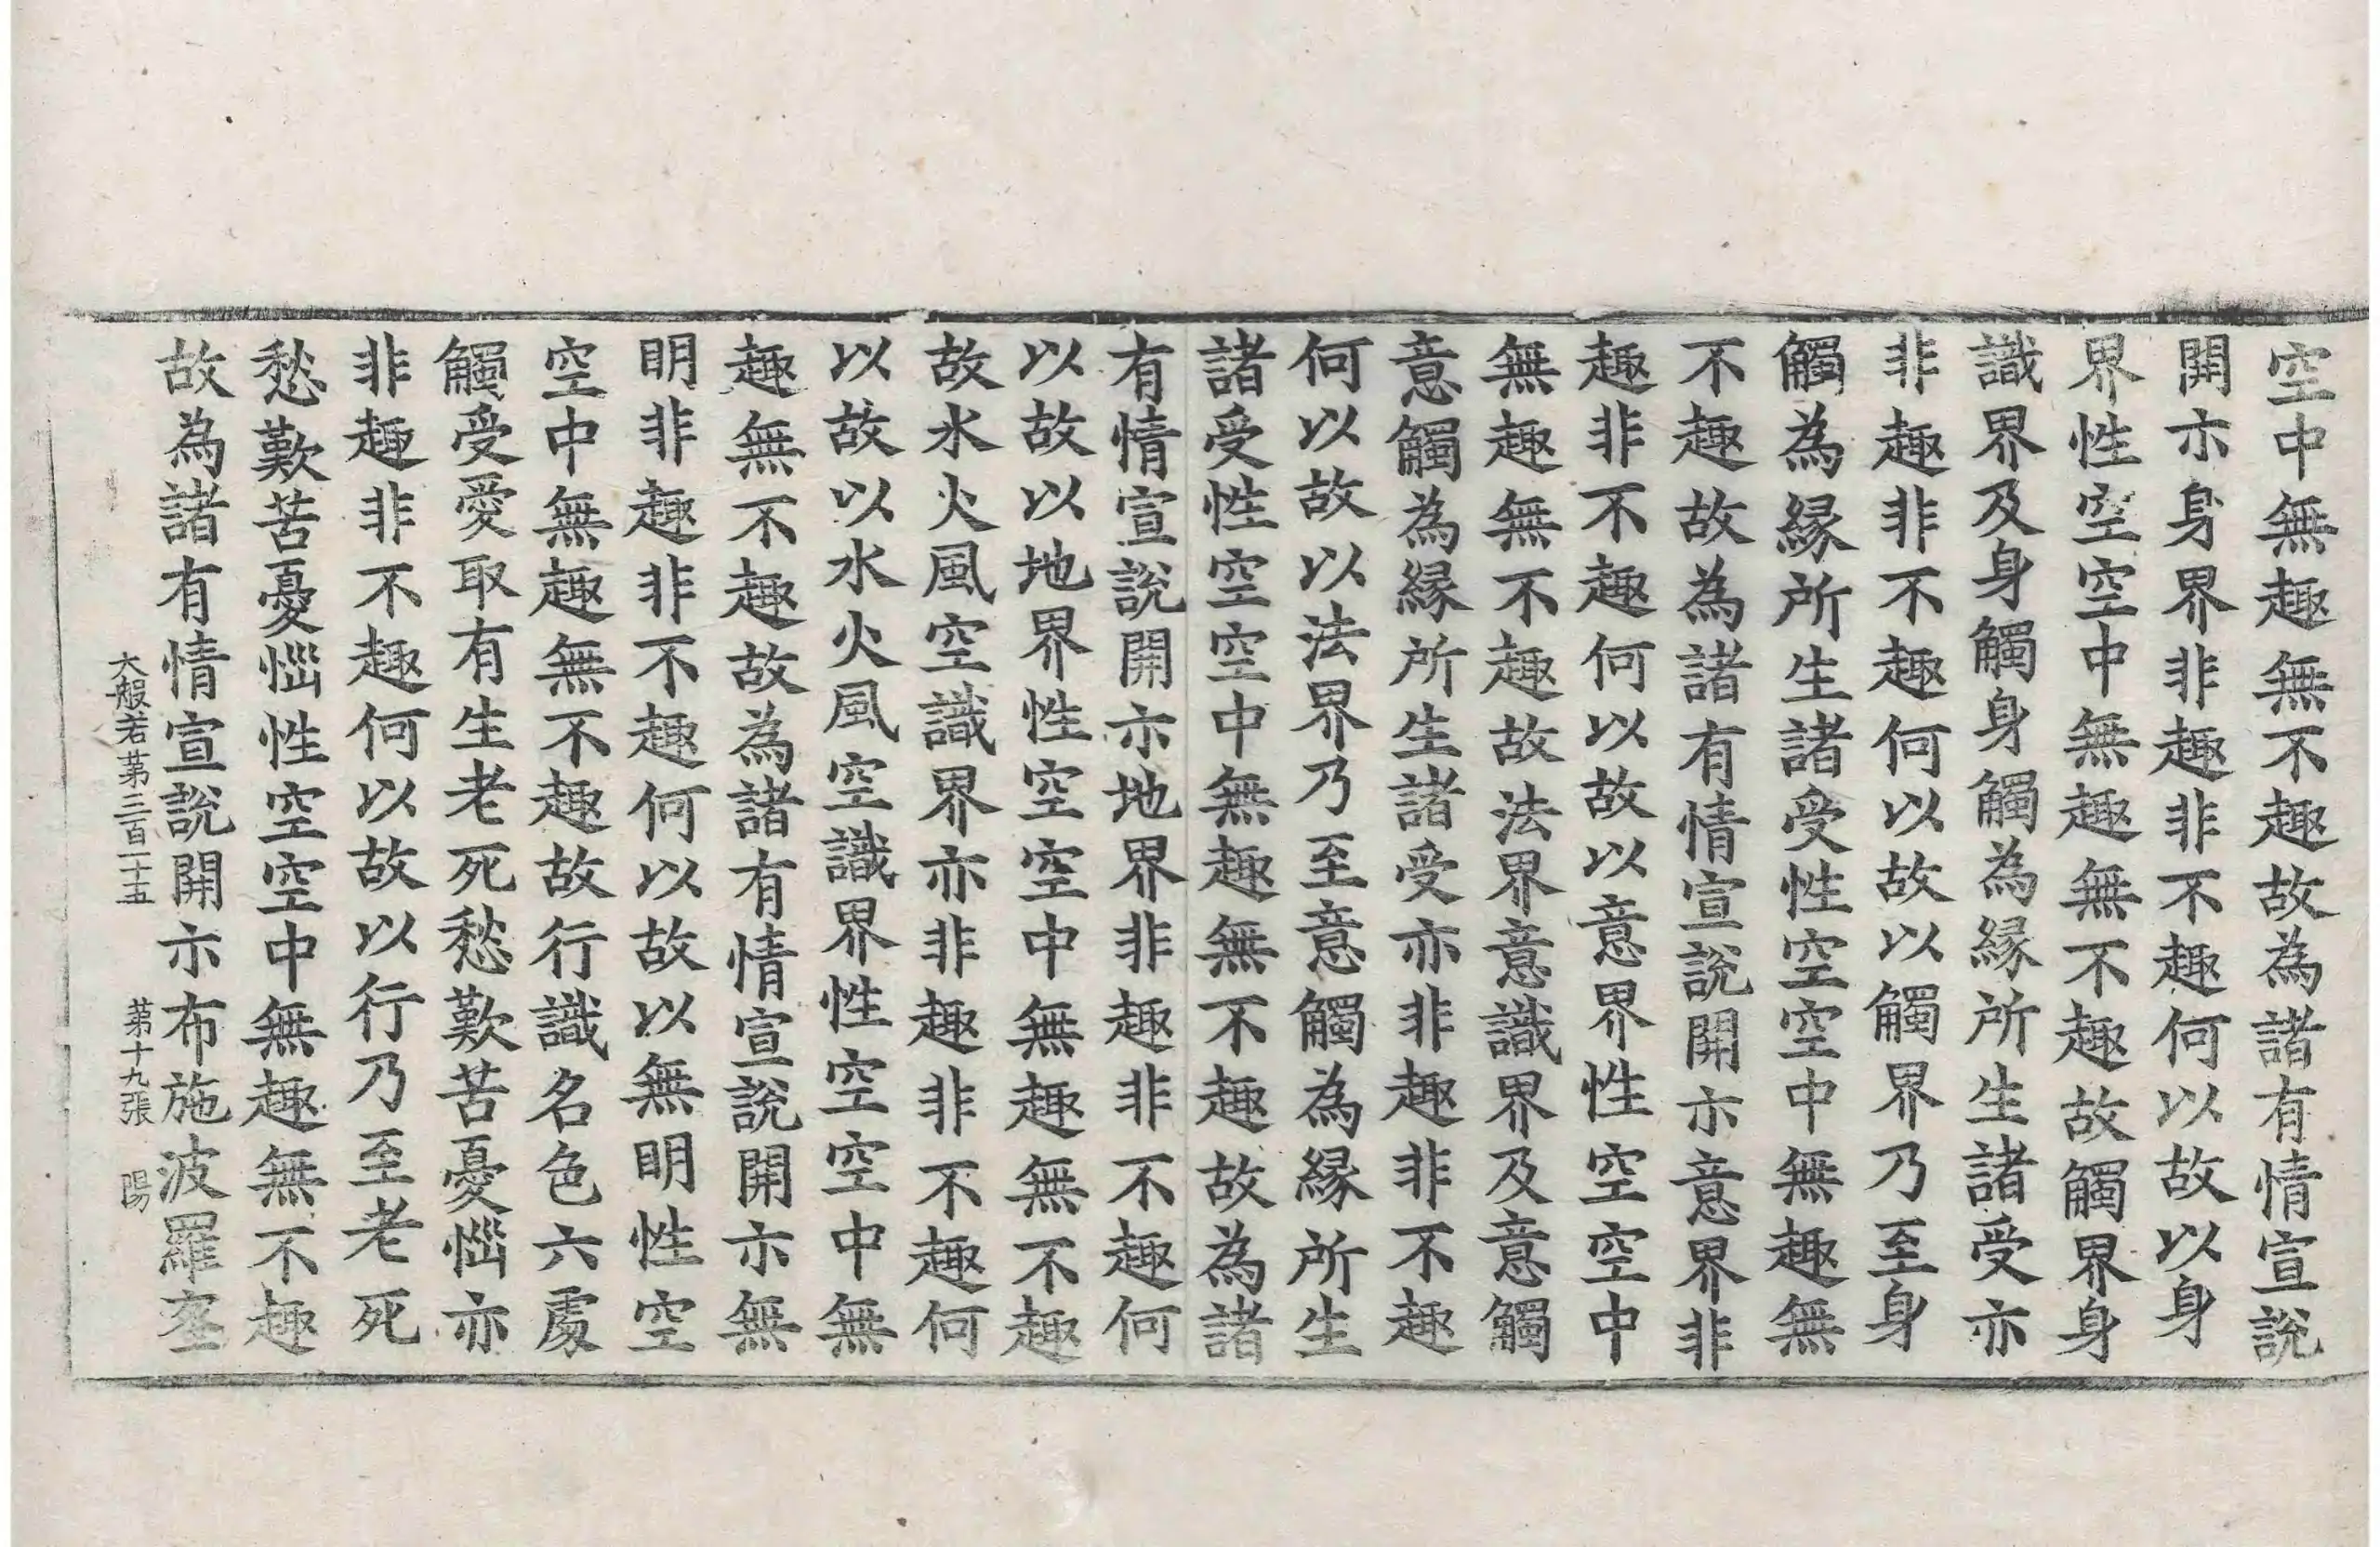 空中無趣無不趣故為諸有情宣說
開示身界非趣非不趣何以故以身
界性空空中無趣無不趣故觸界身
識界及身觸身觸為緣所生諸受亦
非趣非不趣何以故以觸界乃至身
觸為緣所生諸受性空空中無趣無
不趣故為諸有情宣說開示意界非
趣非不趣何以故以意界性空空中
無趣無不趣故法界意識界及意觸
意觸為緣所生諸受亦非趣非不趣
何以故以法界乃至意觸為緣所生
諸受性空空中無趣無不趣故為諸
有情宣說開示地界非趣非不趣何
以故以地界性空空中無趣無不趣
故水火風空識界亦非趣非不趣何
以故以水火風空識界性空空中無
趣無不趣故為諸有情宣說開示無
明非趣非不趣何以故以無明性空
空中無趣無不趣故行識名色六處
觸受愛取有生老死愁歎苦憂惱亦
非趣非不趣何以故以行乃至老死
愁歎苦憂惱性空空中無趣無不趣
故為諸有情宣說開示布施波羅蜜
大般若苐三百二十五 苐十九張 陽